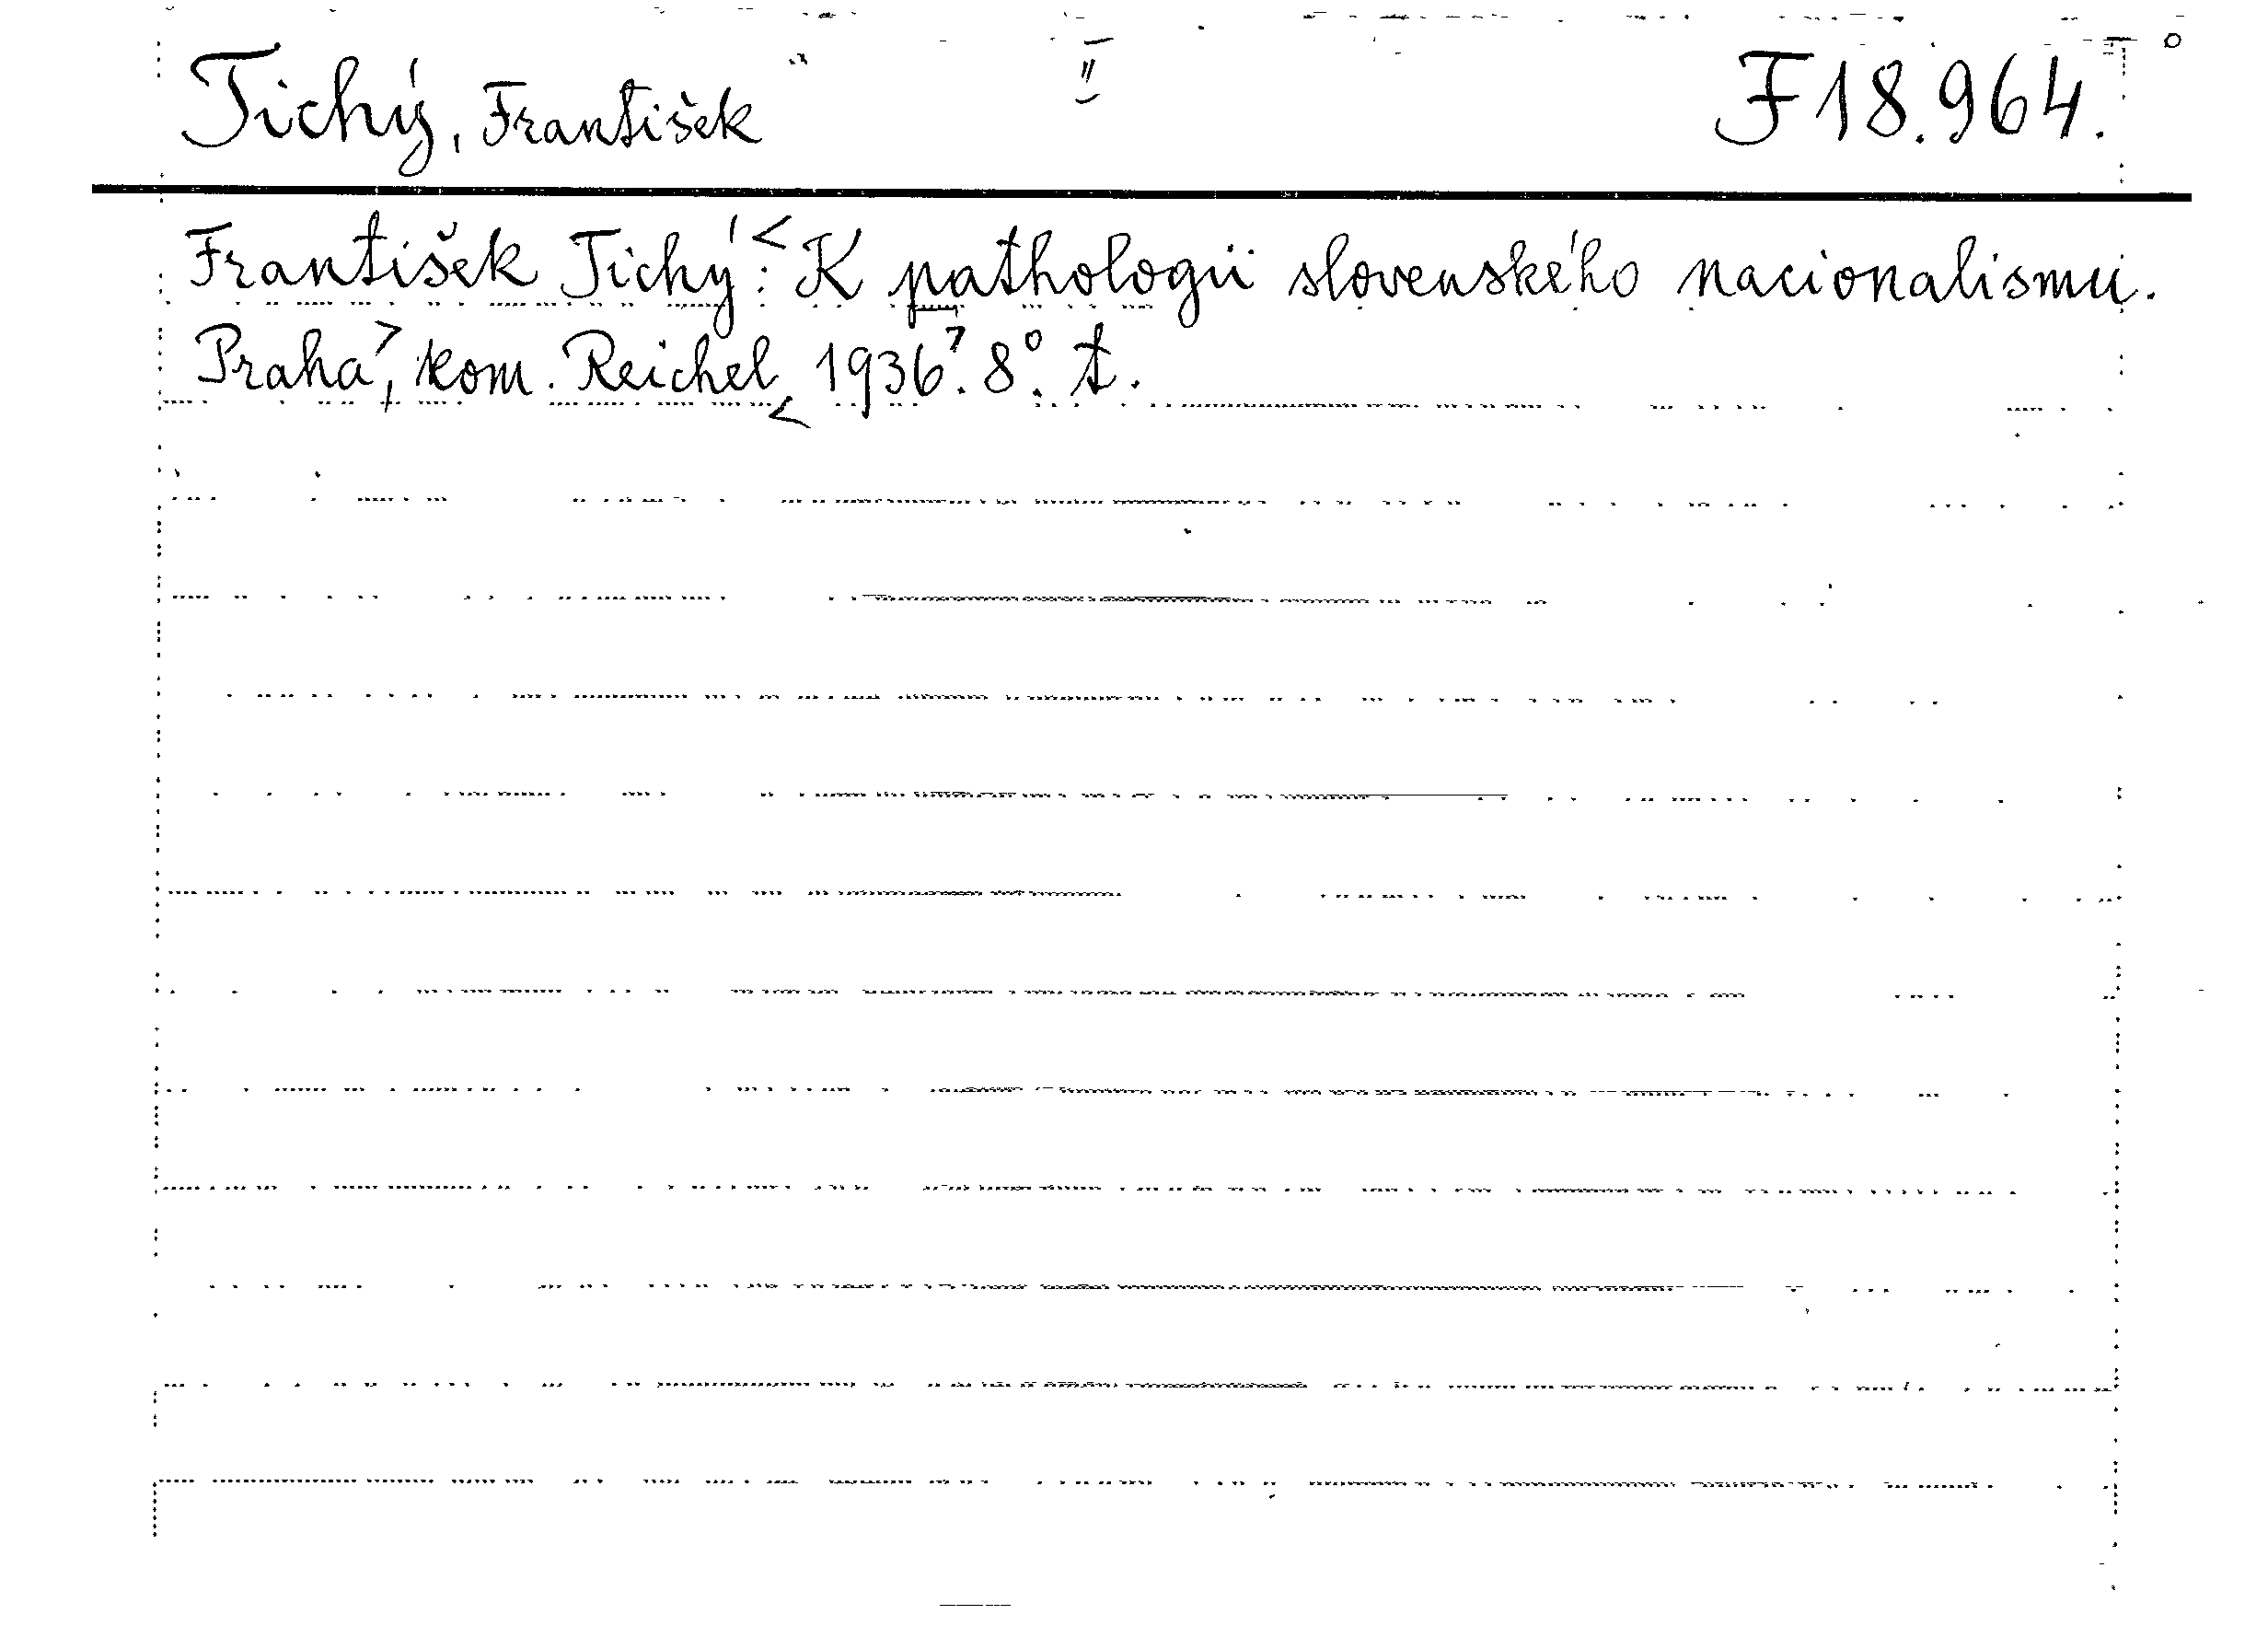 Tichý, František II F 18.964.
František Tichý:<K pathologii slovenského nacionalismu.
Praha>, kom. Reichel <1936>. 8°. t.